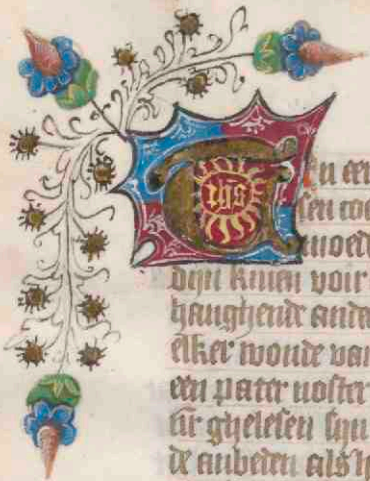 T
ihs
en een
sen coe
moed
dijn knien voir
hanghende ande
elker wonde van
een pater noster
ghelesen
de anbeden als h